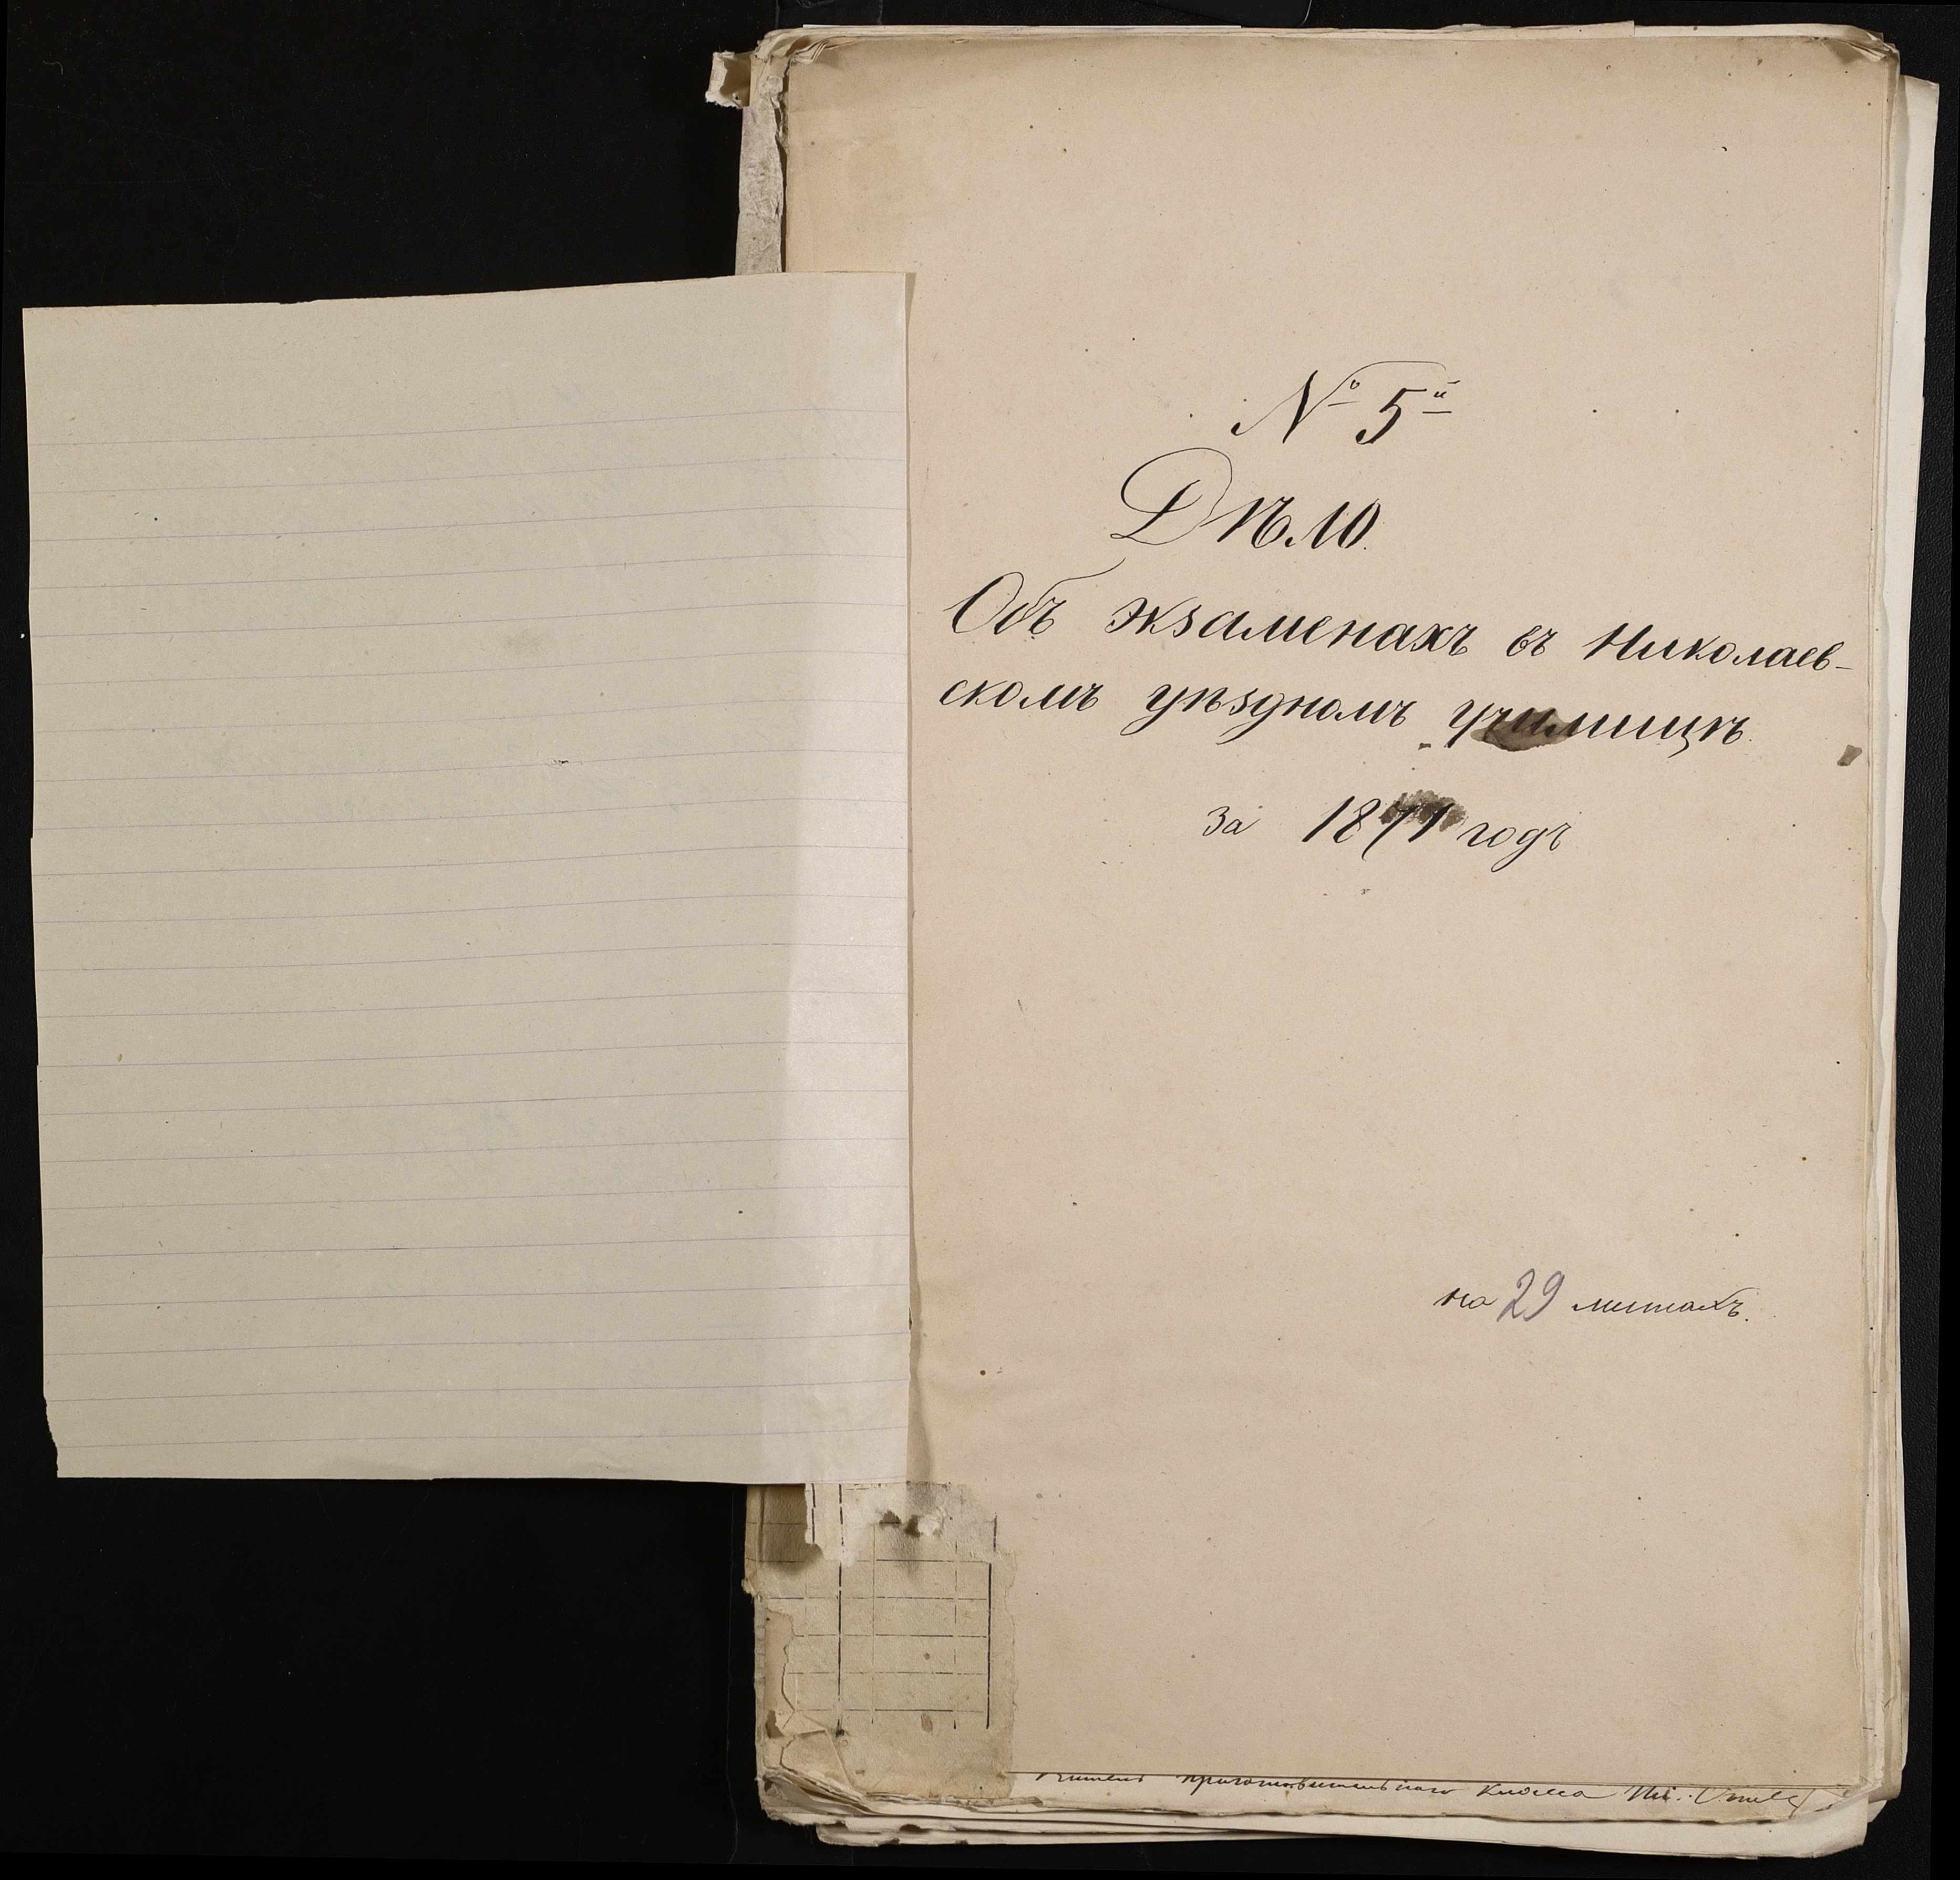 № 5й
Дѣло.
Объ экзаменахъ въ Николаев-
скомъ уѣздномъ училищѣ.
за 1871 годъ
на 29 листахъ.
приготовительнаго класса